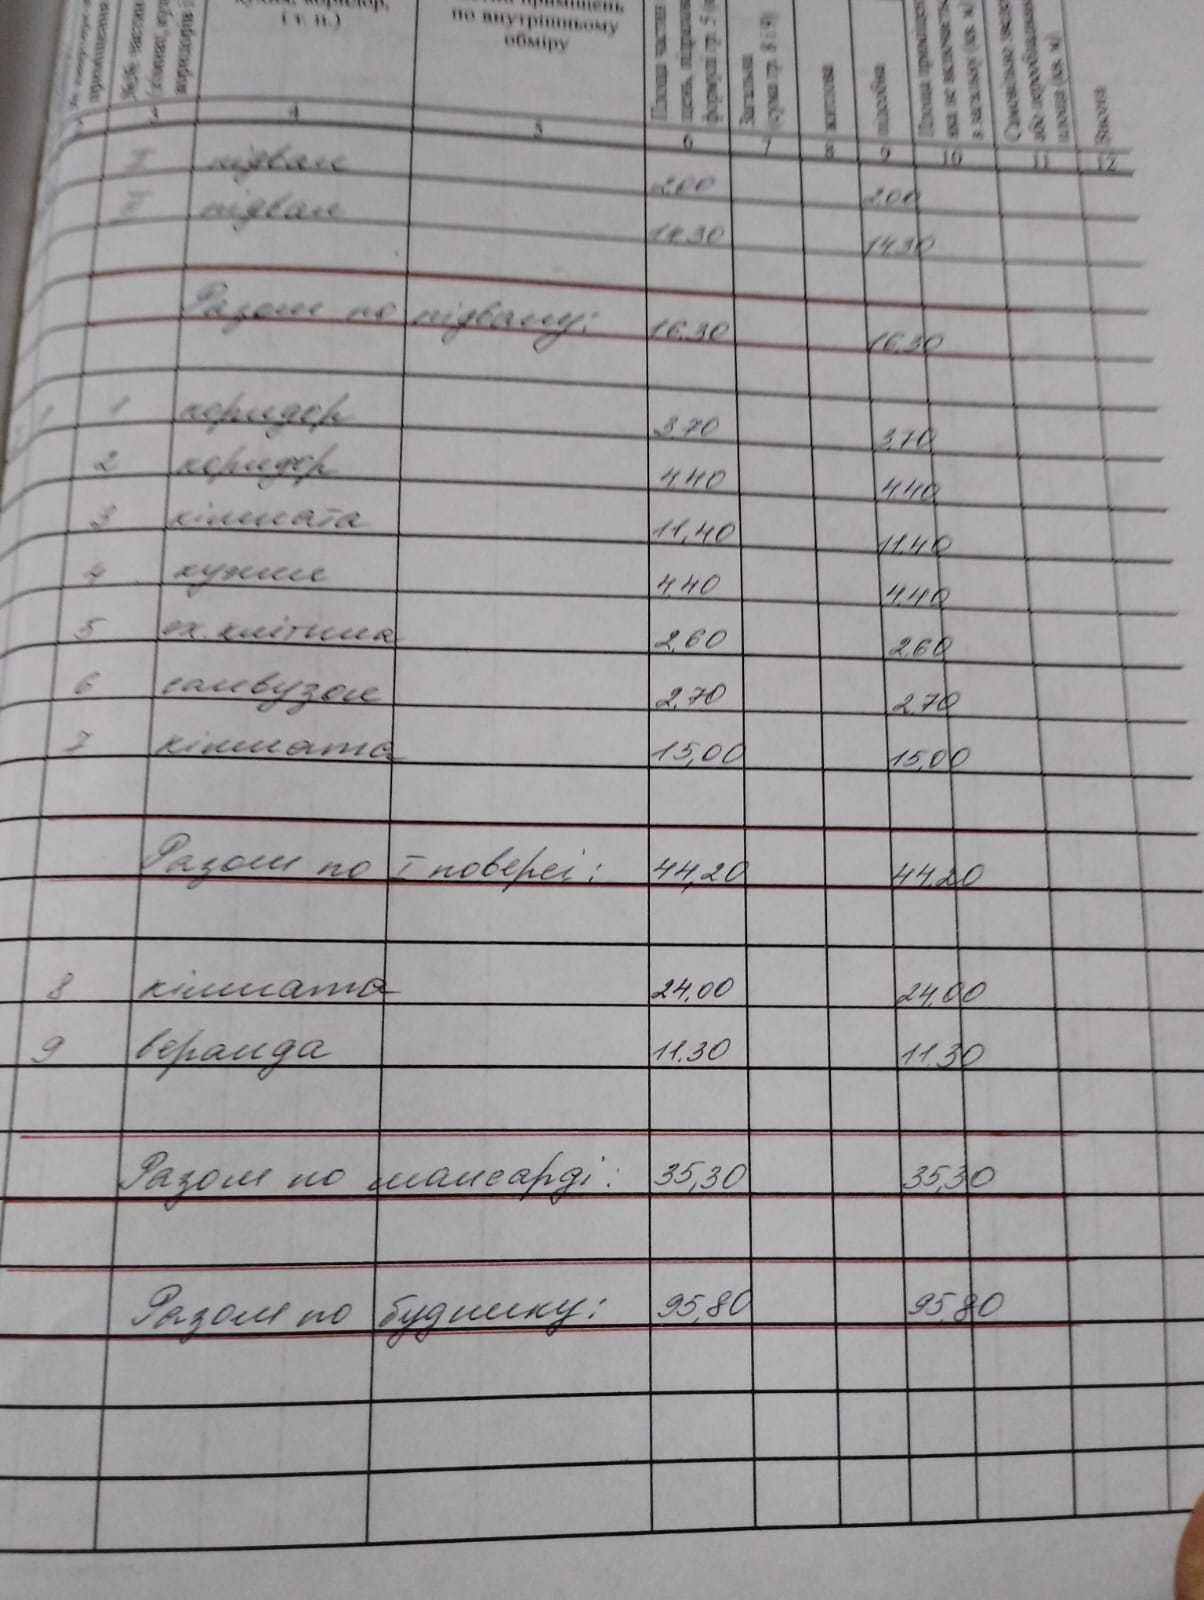 приміщення
№№ частин
коридорів і
кухня, коридор,
і т. п.)
приміщень
по внутрішньому
обміру
Площа частин
формули гр. 5
Загальна
(сума гр. 8 і 9)
житлова
підсобна
Площа
яка не
в загальну (кв. м)
Самовільно
або переобладнана
площа (кв. м)
Висота
1 2 4 5 6 7 8 9 10 11 12
I підвал 2.00 2.00
II підвал 14.30 14.30
Разом по підвалу: 16.30 16.30
1 1 коридор 3.70 3.70
2 коридор 4.40 4.40
3 кімната 11,40 11.40
4 кухня 4.40 4.40
5 сх. клітина 2,60 2.60
6 санвузол 2,70 2.70
7 кімната 15,00 15,00
Разом по I поверсі: 44,20 44.20
8 кімната 24.00 24.00
9 веранда 11.30 11.30
Разом по мансарді: 35,30 35,30
Разом по будинку: 95,80 95,80